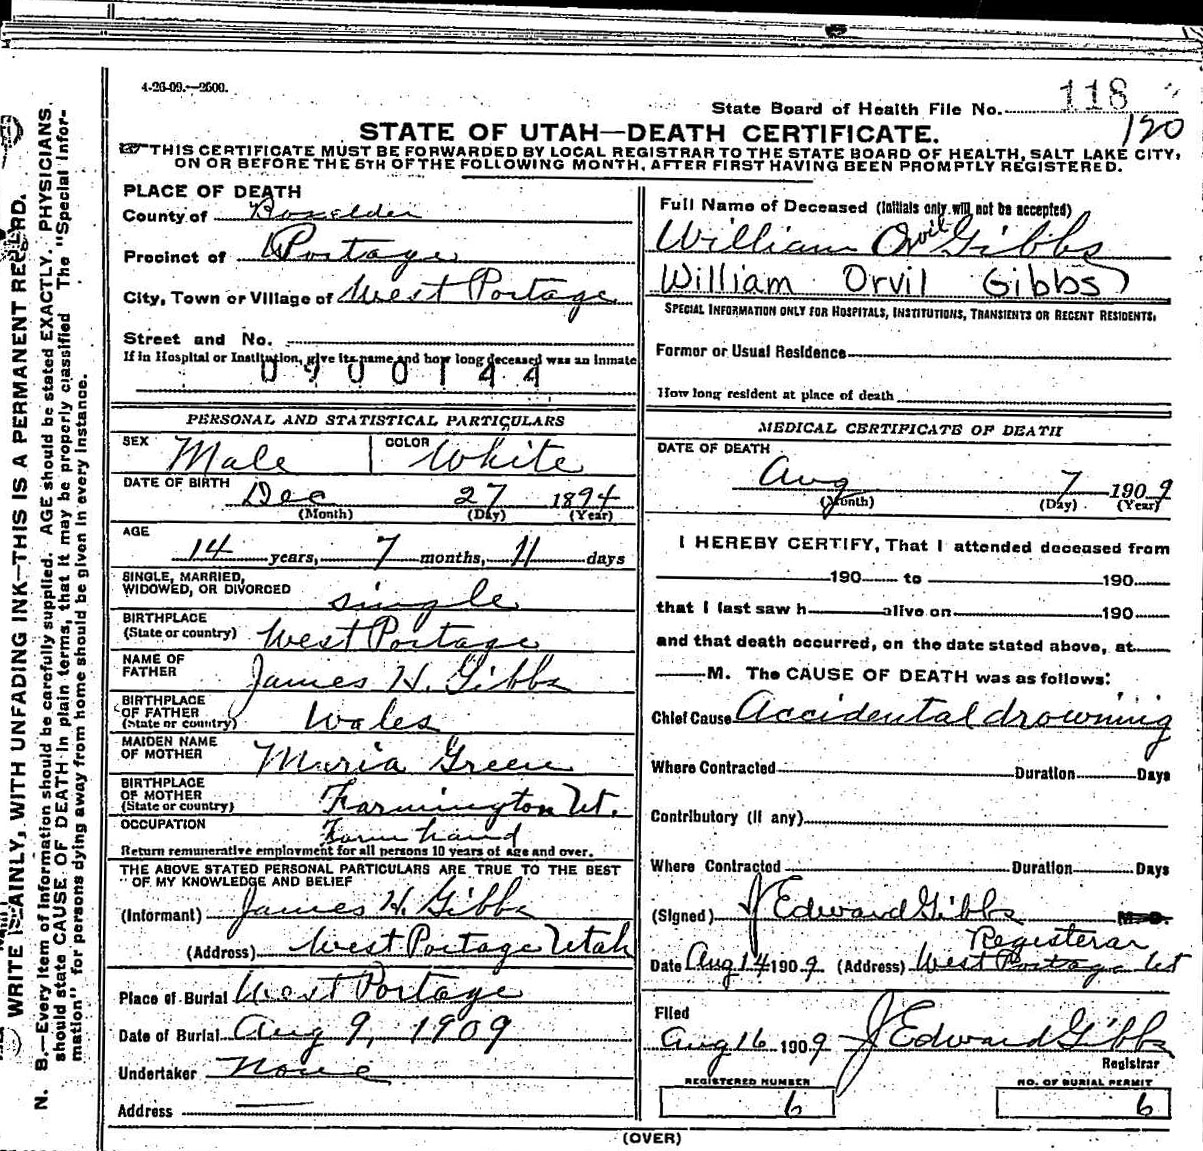 4-26-09.—2500.
State Board of Health File No. 118
120
STATE OF UTAH—DEATH CERTIFICATE.
THIS CERTIFICATE MUST BE FORWARDED BY LOCAL REGISTRAR TO THE STATE BOARD OF HEALTH, SALT LAKE CITY,
ON OR BEFORE THE 5TH OF THE FOLLOWING MONTH, AFTER FIRST HAVING BEEN PROMPTLY REGISTERED.
PLACE OF DEATH
County of Boxelder
Precinct of Portage
City, Town or Village of West Portage
Street and No.
If in Hospital or Institution, give its name and how long deceased was an inmate
0900144
PERSONAL AND STATISTICAL PARTICULARS
SEX Male COLOR White
DATE OF BIRTH Dec 27 1894
(Month) (Day) (Year)
AGE 14 years, 7 months, 11 days
SINGLE, MARRIED,
WIDOWED, OR DIVORCED single
BIRTHPLACE
(State or country) West Portage
NAME OF
FATHER James H. Gibbs
BIRTHPLACE
OF FATHER
(State or country) Wales
MAIDEN NAME
OF MOTHER Maria Green
BIRTHPLACE
OF MOTHER
(State or country) Farmington Ut.
OCCUPATION Farm hand
Return remunerative employment for all persons 10 years of age and over.
THE ABOVE STATED PERSONAL PARTICULARS ARE TRUE TO THE BEST
OF MY KNOWLEDGE AND BELIEF
(Informant) James H. Gibbs
(Address) West Portage Utah
Place of Burial West Portage
Date of Burial Aug 9, 1909
Undertaker None
Address
Full Name of Deceased (initials only will not be accepted)
William Orvil Gibbs
William Orvil Gibbs)
SPECIAL INFORMATION ONLY FOR HOSPITALS, INSTITUTIONS, TRANSIENTS OR RECENT RESIDENTS.
Former or Usual Residence
How long resident at place of death
MEDICAL CERTIFICATE OF DEATH
DATE OF DEATH
Aug 7 1909
(Month) (Day) (Year)
I HEREBY CERTIFY, That I attended deceased from
190 to 190
that I last saw h alive on 190
and that death occurred, on the date stated above, at
M. The CAUSE OF DEATH was as follows:
Chief Cause Accidental drowning
Where Contracted Duration Days
Contributory (if any)
Where Contracted Duration Days
(Signed) J Edward Gibbs M.D.
Registerar
Date Aug 14 1909 (Address) West Portage Ut
Filed
Aug 16 1909 J Edward Gibbs
Registrar
REGISTERED NUMBER NO. OF BURIAL PERMIT
6 6
(OVER)
WRITE PLAINLY, WITH UNFADING INK—THIS IS A PERMANENT RECORD.
N. B.—Every item of information should be carefully supplied. AGE should be stated EXACTLY. PHYSICIANS
should state CAUSE OF DEATH in plain terms, that it may be properly classified The "Special Infor-
mation" for persons dying away from home should be given in every instance.